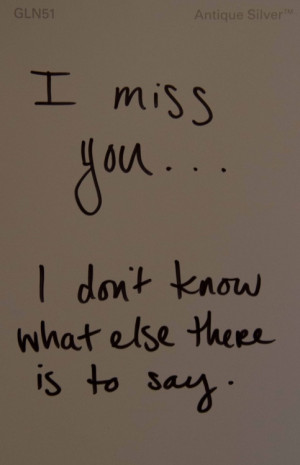 GLN51 Antique Silver™
I miss
you...
I don't know
what else there
is to say.